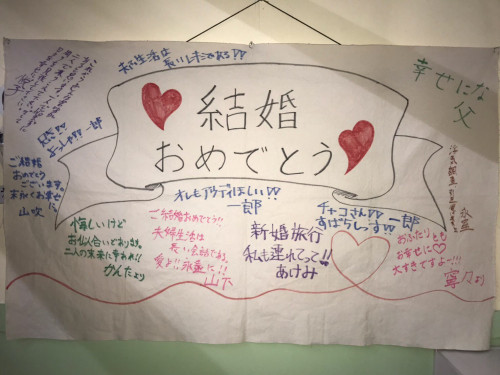 夫婦生活は
長いレースである!!
幸せにな
父
結婚
おめでとう
一郎
ご結婚
おめでとう
ございます。
末永くお幸せに
山吹
オレもアウディほしい!!
一郎
チャコさん!!
すばらしっす!! 一郎
永蔵
悔しいけど
お似合いどす。
二人の未来に幸あれ!!
かんたより
ご結婚おめでとう!!
夫婦生活は
長い会話である。
山下
新婚旅行
私も連れてって!!
あけみ
おふたりとも
お幸せに♡
大すきですよー!!!
寧々より